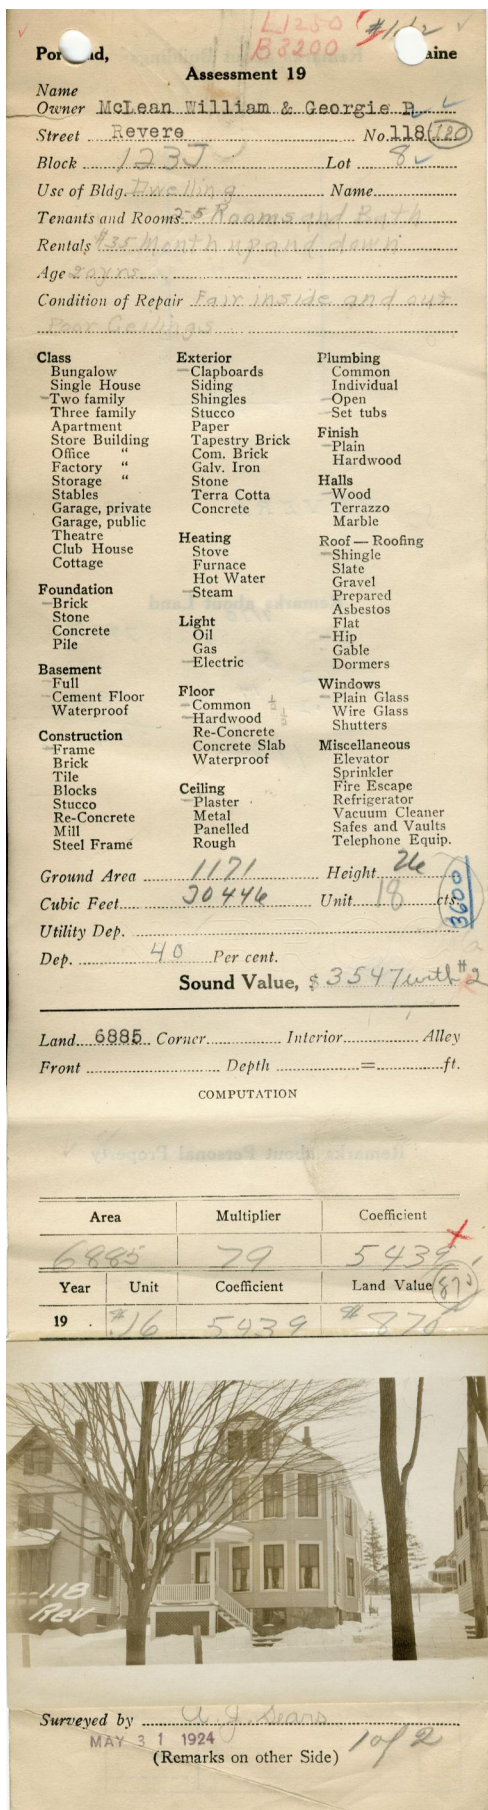 L1250 #1 of 2
B3200
Portland, Maine
Assessment 19
Name
Owner McLean William & Georgie P.
Street Revere No. 118 (120)
Block 123J Lot 8
Use of Bldg. Dwelling Name
Tenants and Rooms 2-5 Rooms and Bath
Rentals $35 Month up and down
Age 20 yrs.
Condition of Repair Fair inside and out
Poor Ceilings
Class
Bungalow
Single House
-Two family
Three family
Apartment
Store Building
Office "
Factory "
Storage "
Stables
Garage, private
Garage, public
Theatre
Club House
Cottage
Foundation
-Brick
Stone
Concrete
Pile
Basement
-Full
-Cement Floor
Waterproof
Construction
-Frame
Brick
Tile
Blocks
Stucco
Re-Concrete
Mill
Steel Frame
Exterior
-Clapboards
Siding
Shingles
Stucco
Paper
Tapestry Brick
Com. Brick
Galv. Iron
Stone
Terra Cotta
Concrete
Heating
Stove
Furnace
Hot Water
-Steam
Light
Oil
Gas
-Electric
Floor
-Common ½
-Hardwood ½
Re-Concrete
Concrete Slab
Waterproof
Ceiling
-Plaster
Metal
Panelled
Rough
Plumbing
Common
Individual
-Open
-Set tubs
Finish
-Plain
Hardwood
Halls
-Wood
Terrazzo
Marble
Roof — Roofing
-Shingle
Slate
Gravel
Prepared
Asbestos
Flat
-Hip
Gable
Dormers
Windows
-Plain Glass
Wire Glass
Shutters
Miscellaneous
Elevator
Sprinkler
Fire Escape
Refrigerator
Vacuum Cleaner
Safes and Vaults
Telephone Equip.
Ground Area 1171 Height 26
Cubic Feet 30446 Unit 18 cts.
3600
Utility Dep.
Dep. 40 Per cent.
Sound Value, $ 3547 with #2
Land 6885 Corner Interior Alley
Front Depth = ft.
COMPUTATION
Area Multiplier Coefficient
6885 79 5439
Year Unit Coefficient Land Value 870
19 . $.16 5439 $870
118
Rev
Surveyed by A. J. Sears
MAY 31 1924
(Remarks on other Side) 1 of 2